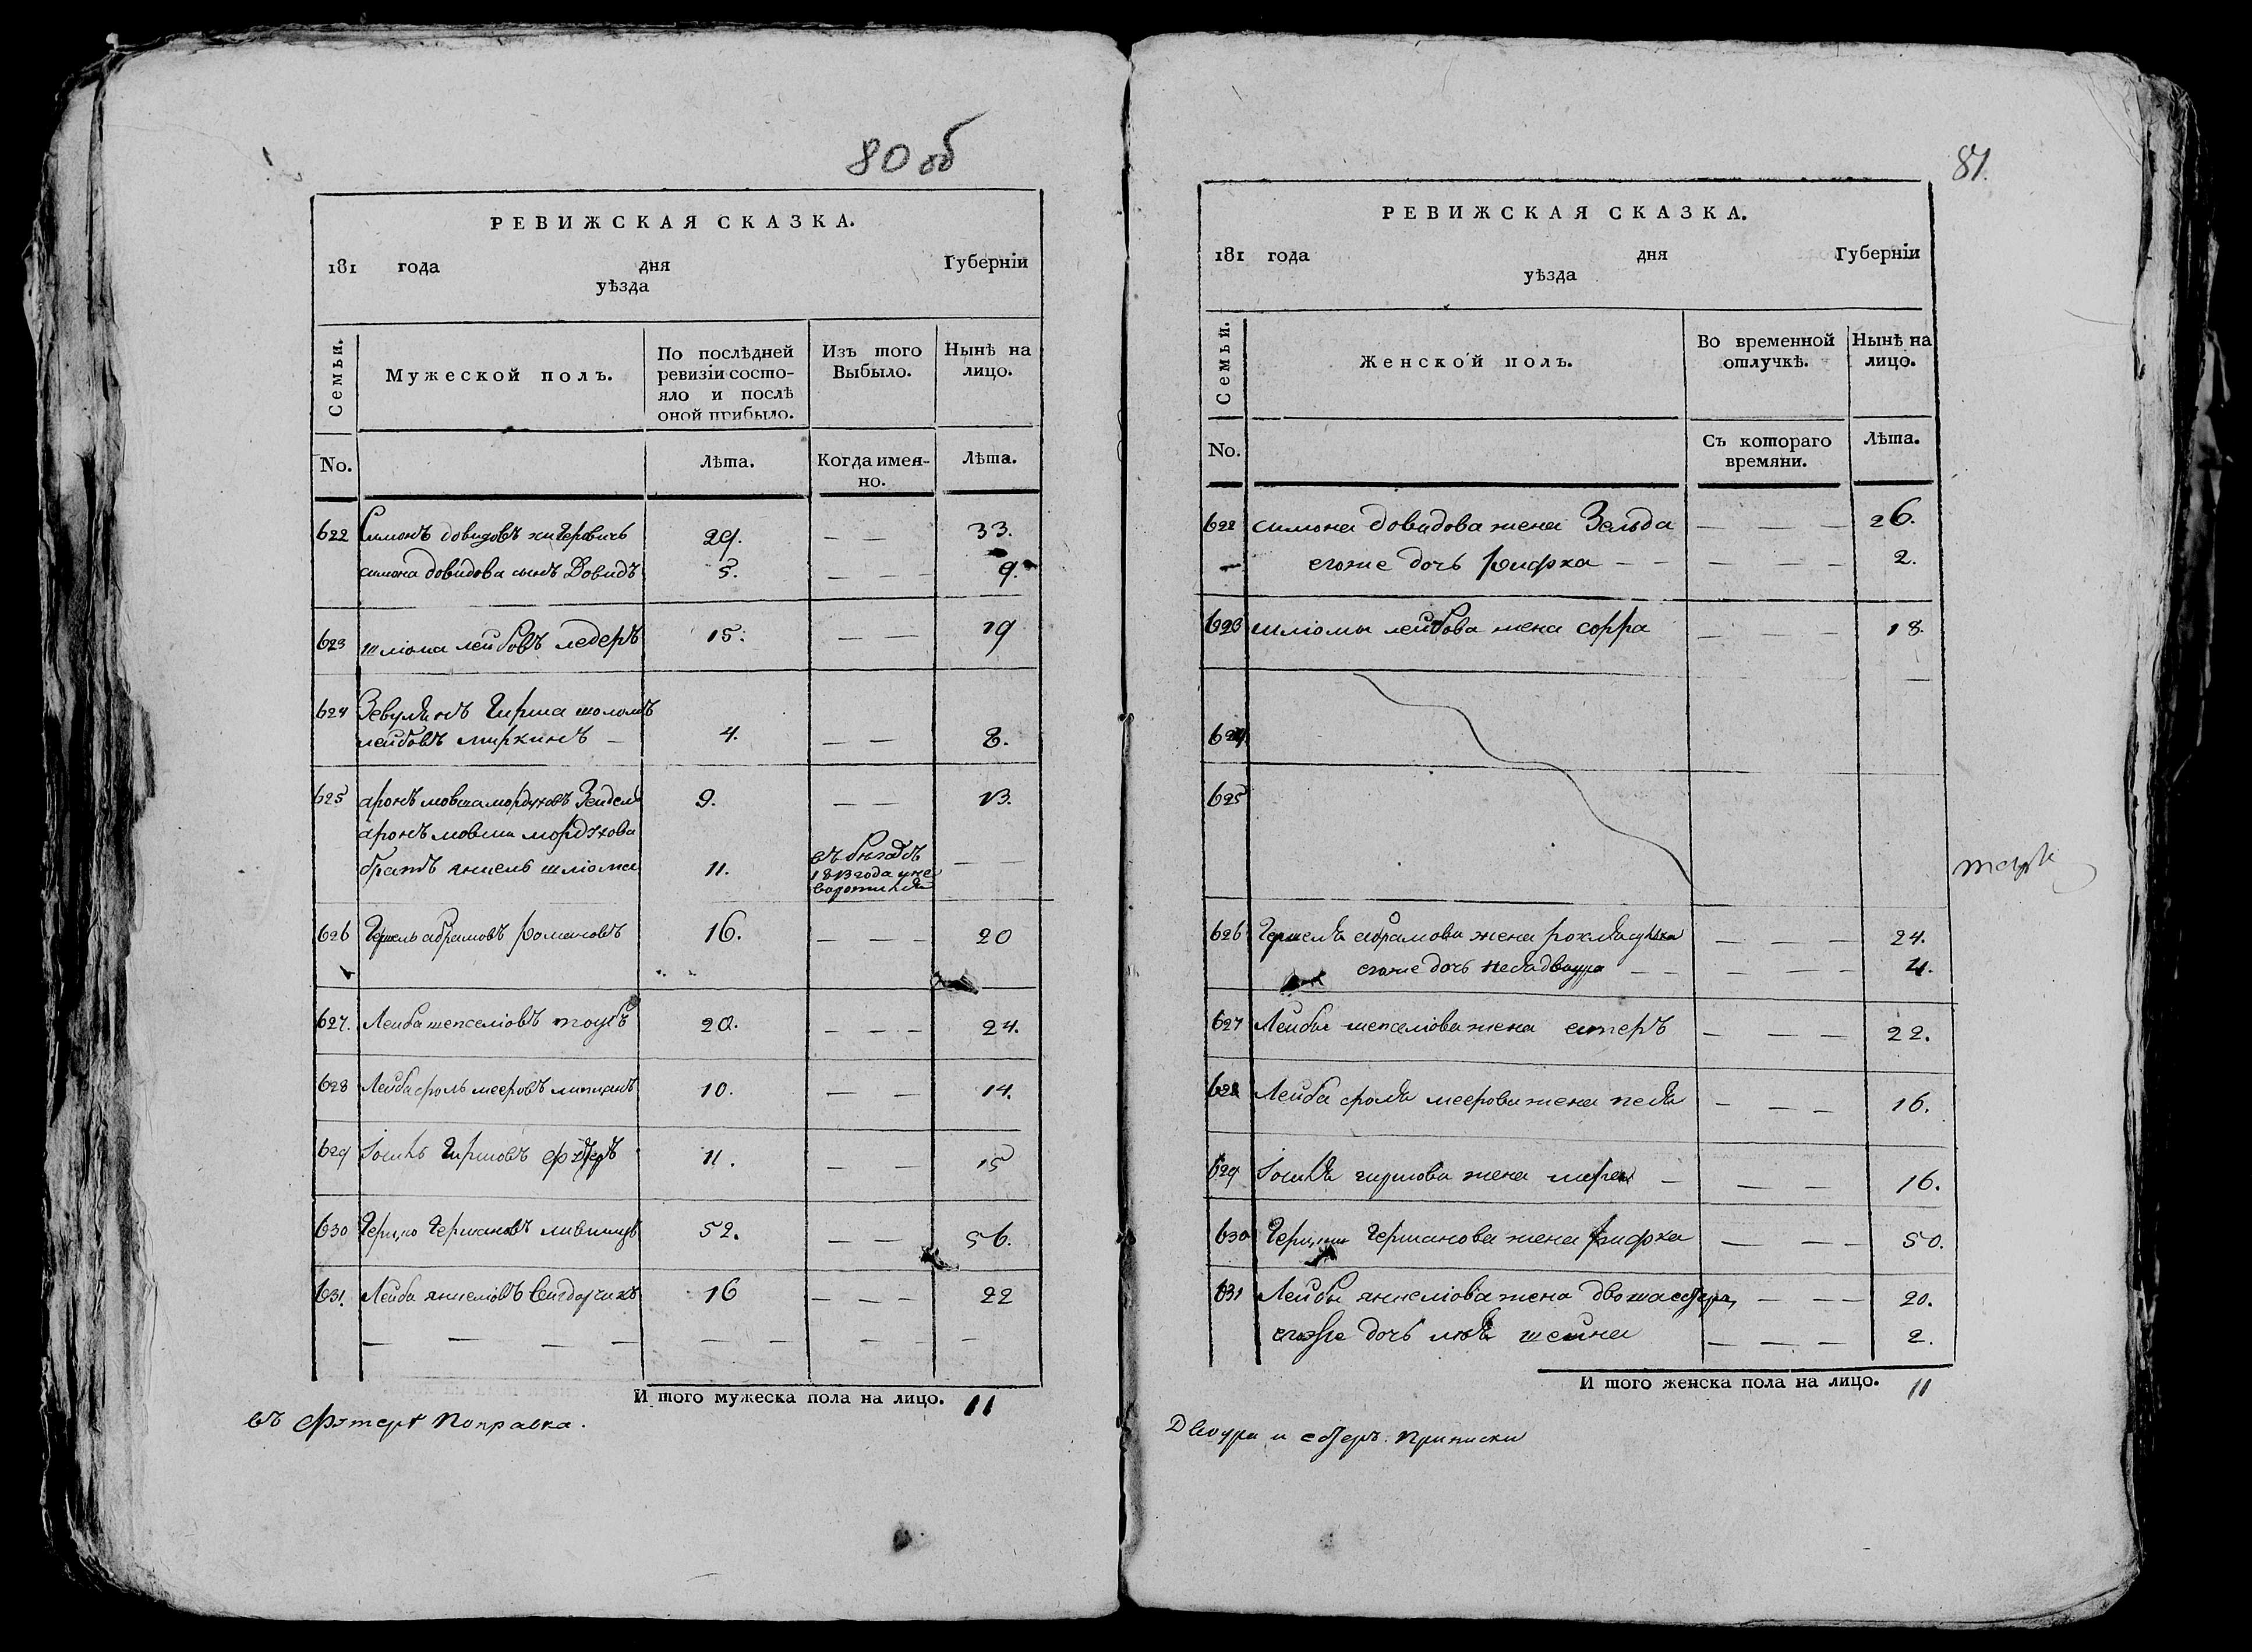 80 об
РЕВИЖСКАЯ СКАЗКА.
181 года дня Губерніи
уѣзда
Семьи. Мужеской полъ. По послѣдней ревизіи состояло и послѣ оной прибыло. Изъ того Выбыло. Нынѣ на лицо.
No. Лѣта. Когда именно. Лѣта.
622 Симонъ довидовъ хигеровичъ 29. — — 33.
симона довидова сынъ Довидъ 5. — — — 9.
623 шліома лейбовъ ледеръ 15. — — 19
624 Зевулянъ Гирша шоломъ
лейбовъ миркинъ — 4. — — 8.
625 аронъ мовша мордуховъ Зейдель 9. — — 13.
аронъ мовши мордухова
братъ янкель шліома 11. въ бѣгахъ — —
1813 года
626 Гершель абрамовъ 16. — — — 20
627. Лейба шепселіовъ таубъ 20. — — — 24.
628 Лейба сроль мееровъ липманъ 10. — — 14.
629 Іосиль Гиршовъ 11. — — 15
630 Герцко Германовъ лившицъ 52. — — 56.
631. Лейба янкеліовъ 16 — — — 22
— — — — — — — — — —
И того мужеска пола на лицо. 11
въ фәтеръ поправка.
81.
РЕВИЖСКАЯ СКАЗКА.
181 года дня Губерніи
уѣзда
Семьи. Женской полъ. Во временной отлучкѣ. Нынѣ на лицо.
No. Съ котораго времяни. Лѣта.
622 симона довидова жена Зельда — — — 26.
егоже дочь рифка — — — — — 2.
623 шліомы лейбова жена сорра — — — 18.
624
625
626 Гершеля абрамова жена рохля — — — 24.
егоже дочь песя двоура — — — — — 4.
627 Лейбы шепселіова жена естеръ — — — 22.
628 Лейба сроля меерова жена песя — — — 16.
629 Іосиля гиршова жена — — — 16.
630 Германова жена рифка — — — 50.
631 Лейбы янкеліова жена двоша — — — 20.
егоже дочь шейна — — — 2.
И того женска пола на лицо. 11
Двоура и естеръ приписки